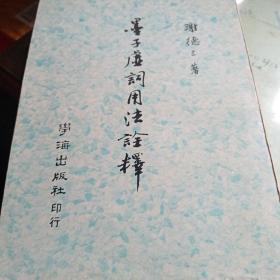 謝德三 著
墨子虛詞用法詮釋
學海出版社 印行